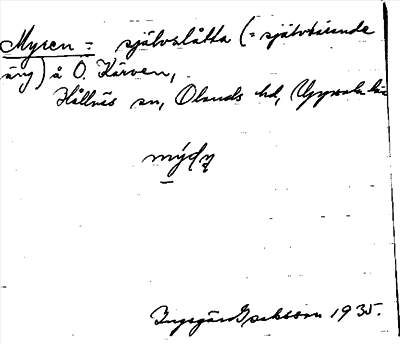 Myren = självslåtta (= självbärande
äng) å Ö. Kärven,
Hållnäs sn, Olands hd, Uppsala län
Ingegärd 1935.